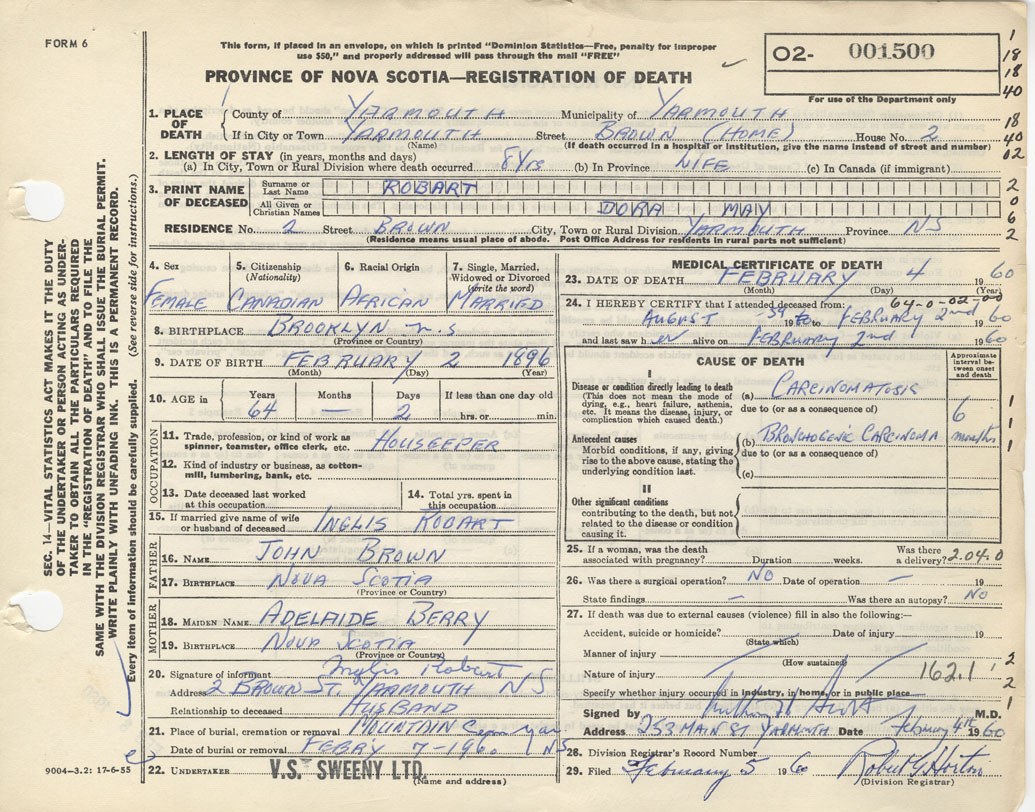 FORM 6
This form, if placed in an envelope, on which is printed "Dominion Statistics—Free, penalty for improper
use $50," and properly addressed will pass through the mail "FREE"
PROVINCE OF NOVA SCOTIA—REGISTRATION OF DEATH
O2- 001500
For use of the Department only
1. PLACE OF DEATH
County of YARMOUTH Municipality of YARMOUTH
If in City or Town YARMOUTH Street BROWN (HOME) House No. 2
(Name) (If death occurred in a hospital or institution, give the name instead of street and number)
2. LENGTH OF STAY (in years, months and days)
(a) In City, Town or Rural Division where death occurred 8 Yrs (b) In Province LIFE (c) In Canada (if immigrant)
3. PRINT NAME OF DECEASED
Surname or Last Name ROBART
All Given or Christian Names DORA MAY
RESIDENCE No. 2 Street BROWN City, Town or Rural Division YARMOUTH Province NS
(Residence means usual place of abode. Post Office Address for residents in rural parts not sufficient)
4. Sex
FEMALE
5. Citizenship
(Nationality)
CANADIAN
6. Racial Origin
AFRICAN
7. Single, Married,
Widowed or Divorced
(write the word)
MARRIED
8. BIRTHPLACE BROOKLYN N.S
(Province or Country)
9. DATE OF BIRTH FEBRUARY 2 1896
(Month) (Day) (Year)
10. AGE in
Years Months Days If less than one day old
64 — 2 hrs. or min.
OCCUPATION
11. Trade, profession, or kind of work as
spinner, teamster, office clerk, etc. HOUSEEPER
12. Kind of industry or business, as cotton-
mill, lumbering, bank, etc.
13. Date deceased last worked
at this occupation
14. Total yrs. spent in
this occupation
15. If married give name of wife
or husband of deceased INGLIS ROBART
FATHER
16. NAME JOHN BROWN
17. BIRTHPLACE NOVA SCOTIA
(Province or Country)
MOTHER
18. MAIDEN NAME ADELAIDE BERRY
19. BIRTHPLACE NOVA SCOTIA
(Province or Country)
20. Signature of informant Inglis Robart
Address 2 BROWN ST. YARMOUTH NS
Relationship to deceased HUSBAND
21. Place of burial, cremation or removal MOUNTAIN Cem Yar
Date of burial or removal FEBRY 7-1960 NS
22. UNDERTAKER V.S. SWEENY LTD.
(Name and address)
9004—3.2: 17-6-55
MEDICAL CERTIFICATE OF DEATH
23. DATE OF DEATH FEBRUARY 4 1960
(Month) (Day) (Year)
64-0-02-00
24. I HEREBY CERTIFY that I attended deceased from:
AUGUST 59 19 to FEBRUARY 2nd 1960
and last saw h er alive on FEBRUARY 2nd 1960
CAUSE OF DEATH
Approximate interval between onset and death
I
Disease or condition directly leading to death
(This does not mean the mode of
dying, e.g., heart failure, asthenia,
etc. It means the disease, injury, or
complication which caused death.)
(a) CARCINOMATOSIS
due to (or as a consequence of)
6 months
Antecedent causes
Morbid conditions, if any, giving
rise to the above cause, stating the
underlying condition last.
(b) BRONCHOGENIC CARCINOMA
due to (or as a consequence of)
(c)
II
Other significant conditions
contributing to the death, but not
related to the disease or condition
causing it.
25. If a woman, was the death
associated with pregnancy? Duration weeks. Was there a delivery? 2.04.0
26. Was there a surgical operation? NO Date of operation — 19
State findings — Was there an autopsy? NO
27. If death was due to external causes (violence) fill in also the following:—
Accident, suicide or homicide? Date of injury 19
(State which)
Manner of injury
(How sustained)
Nature of injury 162.1
Specify whether injury occurred in industry, in home, or in public place
Signed by M.D.
Address 253 MAIN ST YARMOUTH Date February 4th 1960
28. Division Registrar's Record Number
29. Filed February 5 1960 Robert G Horton
(Division Registrar)
SEC. 14—VITAL STATISTICS ACT MAKES IT THE DUTY
OF THE UNDERTAKER OR PERSON ACTING AS UNDER-
TAKER TO OBTAIN ALL THE PARTICULARS REQUIRED
IN THE "REGISTRATION OF DEATH" AND TO FILE THE
SAME WITH THE DIVISION REGISTRAR WHO SHALL ISSUE THE BURIAL PERMIT.
WRITE PLAINLY WITH UNFADING INK. THIS IS A PERMANENT RECORD.
Every item of information should be carefully supplied. (See reverse side for instructions.)
1
18
18
40
18
40
02
2
0
6
2
1
1
1
1
2
2
1